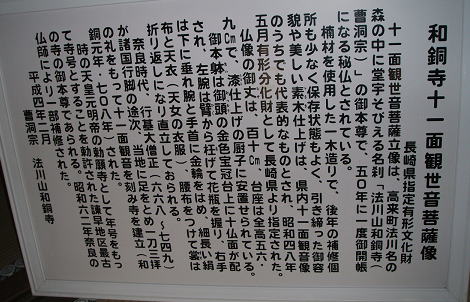 和銅寺十一面観世音菩薩像
長崎県指定有形文化財
十一面観世音菩薩立像は、高来町法川名の
森の中に堂宇そびえる名刹「法川山和銅寺(
曹洞宗)」の御本尊で、五〇年に一度御開帳
になる秘仏とされている。
楠材を使用した一木造りで、後年の補修個
所も少なく保存状態もよく、引き締った御容
貌や美しい素木仕上げは、県内十一面観音像
のうちでも代表的なものとされ、昭和四八年
五月有形分化財として長崎県より指定された。
仏像の御丈は、百十㎝、台座は全高五六・
九㎝で、漆仕上げの厨子に安置せられている。
御本躰は御頭の金色宝冠台上に十仏面が配
され、左腕は臂から枉げて花瓶を握り、右手
は下に垂れ腕と手首に金輪をはめ、細長い絹
布と天衣(天女の衣服)、腰布をつけて裳は
折り返しになり直立しておられる。
奈良時代、行基大僧正(六六八〜七四九)
が諸国行脚の途次、当地に足をとめ一刀三拝
の礼をもって十一面観音を刻み寺を建立(和
銅元年・七〇八年)された。
時の天皇元明帝の勅願寺として、年号をもっ
て寺号とすることを勅許された諫早地区最古
の寺の御本尊であられる。昭和六二年奈良の
仏師により一部補修された。
平成四年二月
曹洞宗 法川山和銅寺